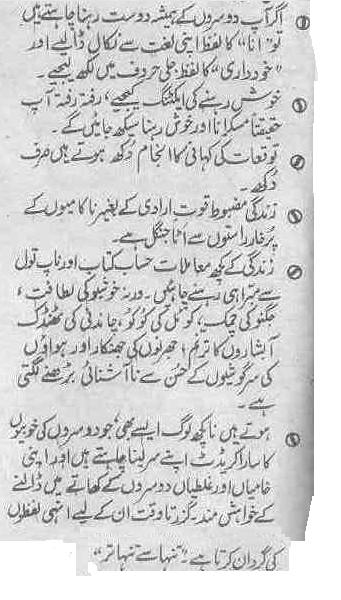 اگر آپ دوسروں کے ہمیشہ دوست رہنا چاہتے ہیں
تو "انا" کا لفظ اپنی لغت سے نکال ڈالیے اور
"خودداری" کا لفظ جلی حروف میں لکھ لیجیے۔
خوش رہنے کی ایکٹنگ کیجیے، رفتہ رفتہ آپ
حقیقتاً مسکرانا اور خوش رہنا سیکھ جائیں گے۔
توقعات کی کہانی کا انجام دُکھ ہوتے ہیں صرف
دُکھ۔
زندگی مضبوط قوت ارادی کے بغیر ناکامیوں کے
پُرخار راستوں سے اٹا جنگل ہے۔
زندگی کے کچھ معاملات حساب کتاب اور ناپ تول
سے مبرا ہی رہنے چاہئیں۔ ورنہ خوشبو کی لطافت،
جگنو کی چمک، کوئل کی کُوکُو، چاندنی کی ٹھنڈک
آبشاروں کا ترنم، جھرنوں کی جھنکار اور ہواؤں
کی سرگوشیوں کے حُسن سے ناآشنائی بڑھنے لگتی
ہے۔
ہوتے ہیں نا کچھ لوگ ایسے بھی، جو دوسروں کی خوبیوں
کا سارا کریڈٹ اپنے سر لینا چاہتے ہیں اور اپنی
خامیاں اور غلطیاں دوسروں کے کھاتے میں ڈالنے
کے خواہش مند۔ گزرتا وقت ان کے لیے انہی لفظوں
کی گردان کرتا ہے۔ "تنہا سے تنہا تر"